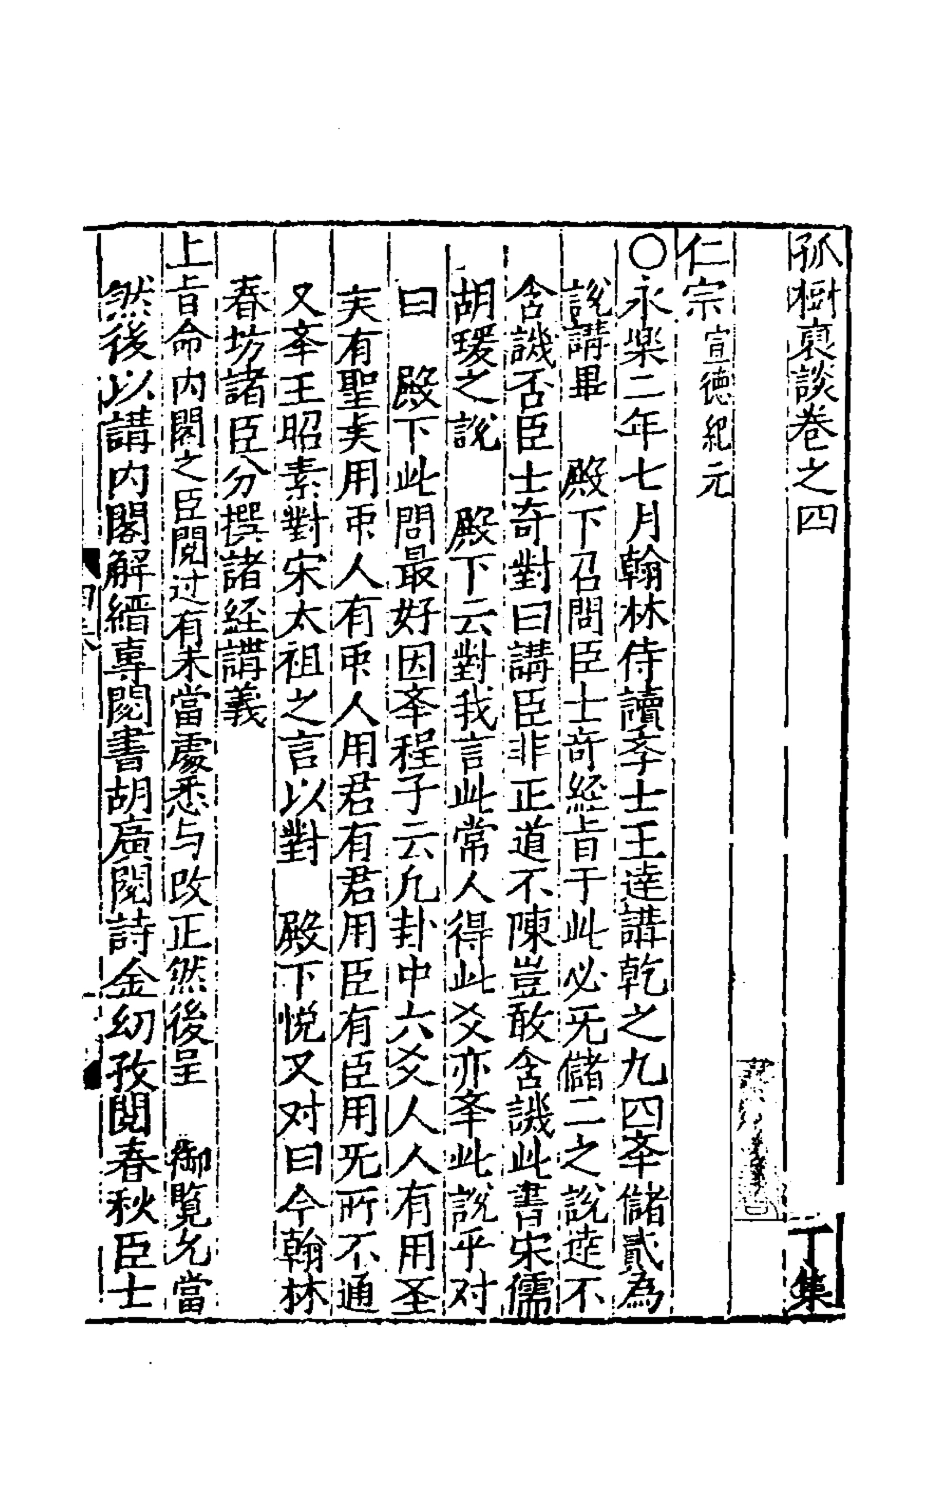 孤樹裒談卷之四
丁集
仁宗宣德紀元
○永樂二年七月翰林侍讀李士王達講乾之九四本儲貳為
說講畢　殿下召問臣士奇經旨于此必无儲二之說達不
含譏否臣士奇對曰講臣非正道不陳豈敢含譏此書宋儒
胡瑗之說　殿下云對我言此常人得此爻亦本此說乎对
曰　殿下此問最好因本程子云凢卦中六爻人人有用圣
人有聖人用贒人有贒人用君有君用臣有臣用旡所不通
又本王昭素對宋太祖之言以對　殿下悦又对曰今翰林
春坊諸臣分撰諸経講義
上旨命内閣之臣閱过有未當處悉与改正然後呈　御覧允當
然後以講内閣解縉專閱書胡廣閱詩金幼孜閱春秋臣士